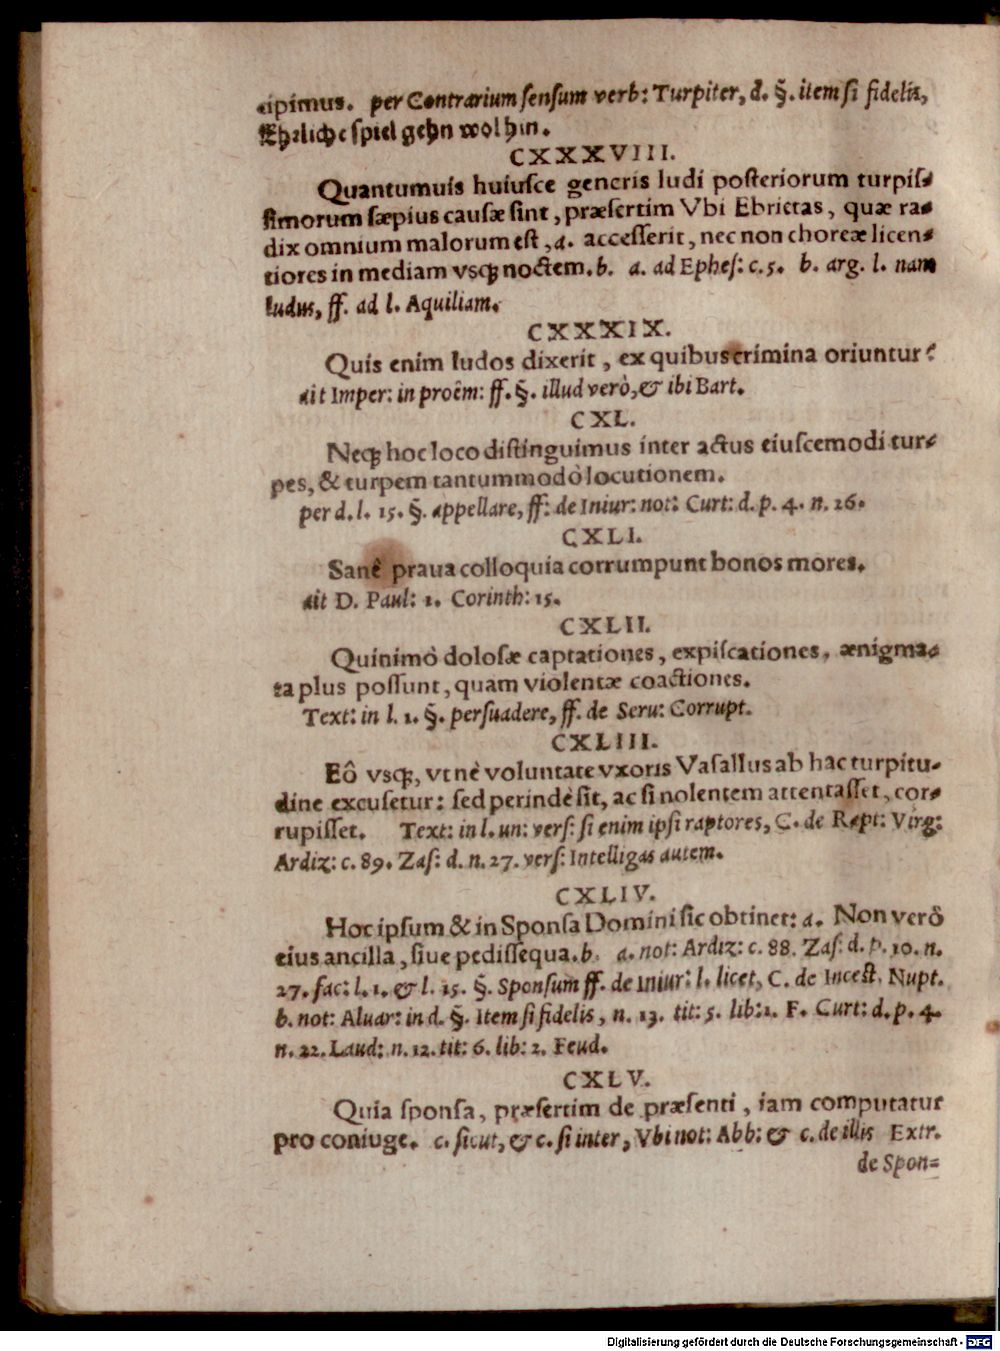 cipimus. per Contrarium ſenſum verb: Turpiter, d. §. item ſi fidelis,
Ehrliche ſpiel gehn wol hin.
CXXXVIII.
Quantumuis huiuſce generis ludi poſteriorum turpiſ-
ſimorum ſæpius cauſæ ſint, præſertim Vbi Ebrietas, quæ ra-
dix omnium malorum eſt, a. acceſſerit, nec non choreæ licen-
tiores in mediam vsq; noctem. b. a. ad Epheſ: c. 5. b. arg. l. nam
ludus, ff. ad l. Aquiliam.
CXXXIX.
Quis enim ludos dixerit, ex quibus crimina oriuntur?
ait Imper: in proêm: ff. §. illud verò, & ibi Bart.
CXL.
Neq; hoc loco diſtinguimus inter actus eiuſcemodi tur-
pes, & turpem tantummodò locutionem.
per d. l. 15. §. appellare, ff: de Iniur: not: Curt: d. p. 4. n. 26.
CXLI.
Sanè praua colloquia corrumpunt bonos mores.
ait D. Paul: 1. Corinth: 15.
CXLII.
Quinimò doloſæ captationes, expiſcationes, ænigma-
ta plus poſſunt, quam violentæ coactiones.
Text: in l. 1. §. perſuadere, ff. de Seru: Corrupt.
CXLIII.
Eô vsq;, vt nè voluntate vxoris Vaſallus ab hac turpitu-
dine excuſetur: ſed perindè ſit, ac ſi nolentem attentaſſet, cor-
rupiſſet. Text: in l. un: verſ: ſi enim ipſi raptores, C. de Rapt: Virg:
Ardiz: c. 89. Zaſ: d. n. 27. verſ: Intelligas autem.
CXLIV.
Hoc ipſum & in Sponſa Domini ſic obtinet: a. Non verô
eius ancilla, ſiue pediſſequa. b. a. not: Ardiz: c. 88. Zaſ: d. p. 10. n.
27. fac: l. 1. & l. 15. §. Sponſum ff. de Iniur: l. licet, C. de Inceſt. Nupt.
b. not: Aluar: in d. §. Item ſi fidelis, n. 13. tit: 5. lib: 1. F. Curt: d. p. 4.
n. 22. Laud: n. 12. tit: 6. lib: 2. Feud.
CXLV.
Quia ſponſa, præſertim de præſenti, iam computatur
pro coniuge. c. ſicut, & c. ſi inter, Vbi not: Abb: & c. de illis Extr.
de Spon=
Digitalisierung gefördert durch die Deutsche Forschungsgemeinschaft - DFG